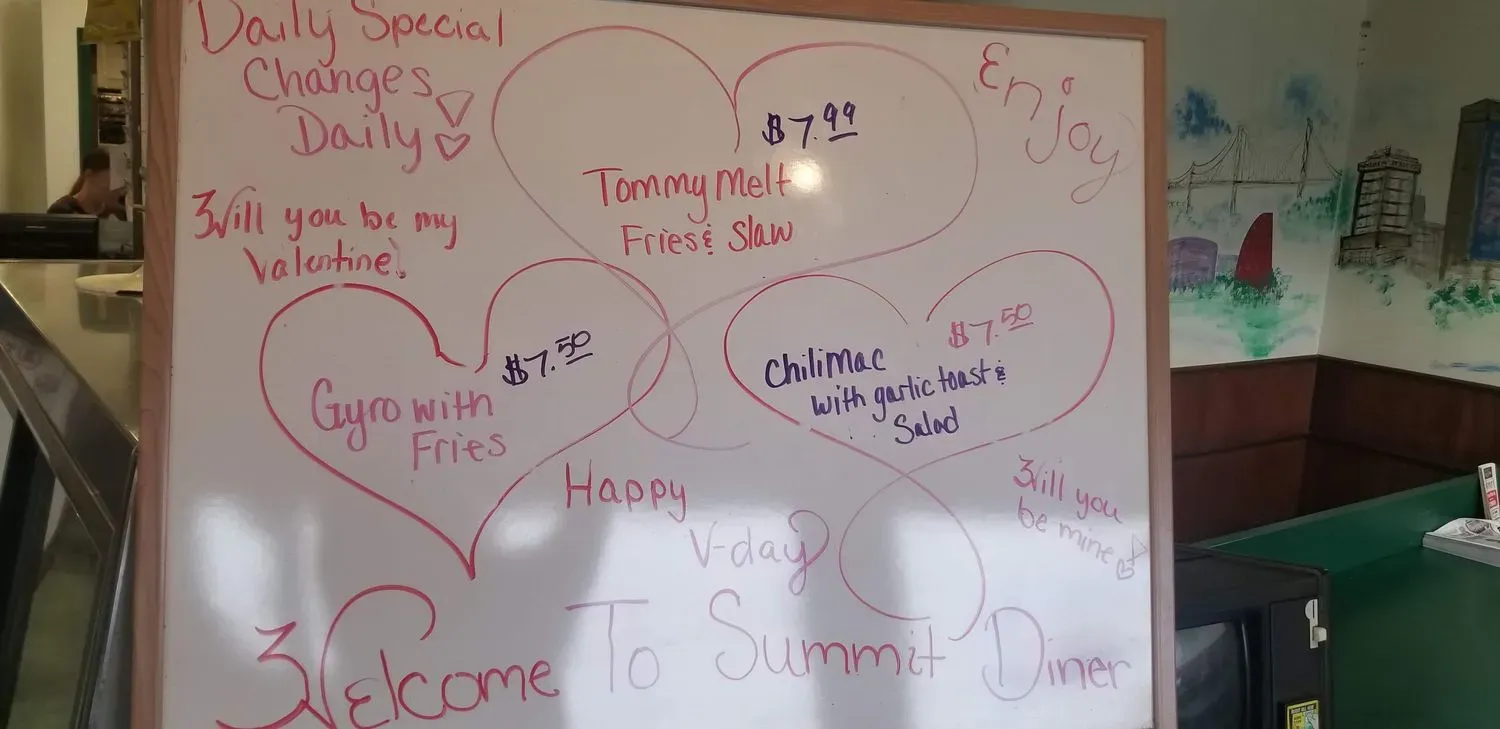 Daily Special
Changes
Daily
Enjoy
$7.99
Tommy Melt
Fries & Slaw
Will you be my
Valentine!
$7.50
Gyro with
Fries
$7.50
Chilimac
with garlic toast &
Salad
Happy
V-day
Will you
be mine
Welcome To Summit Diner